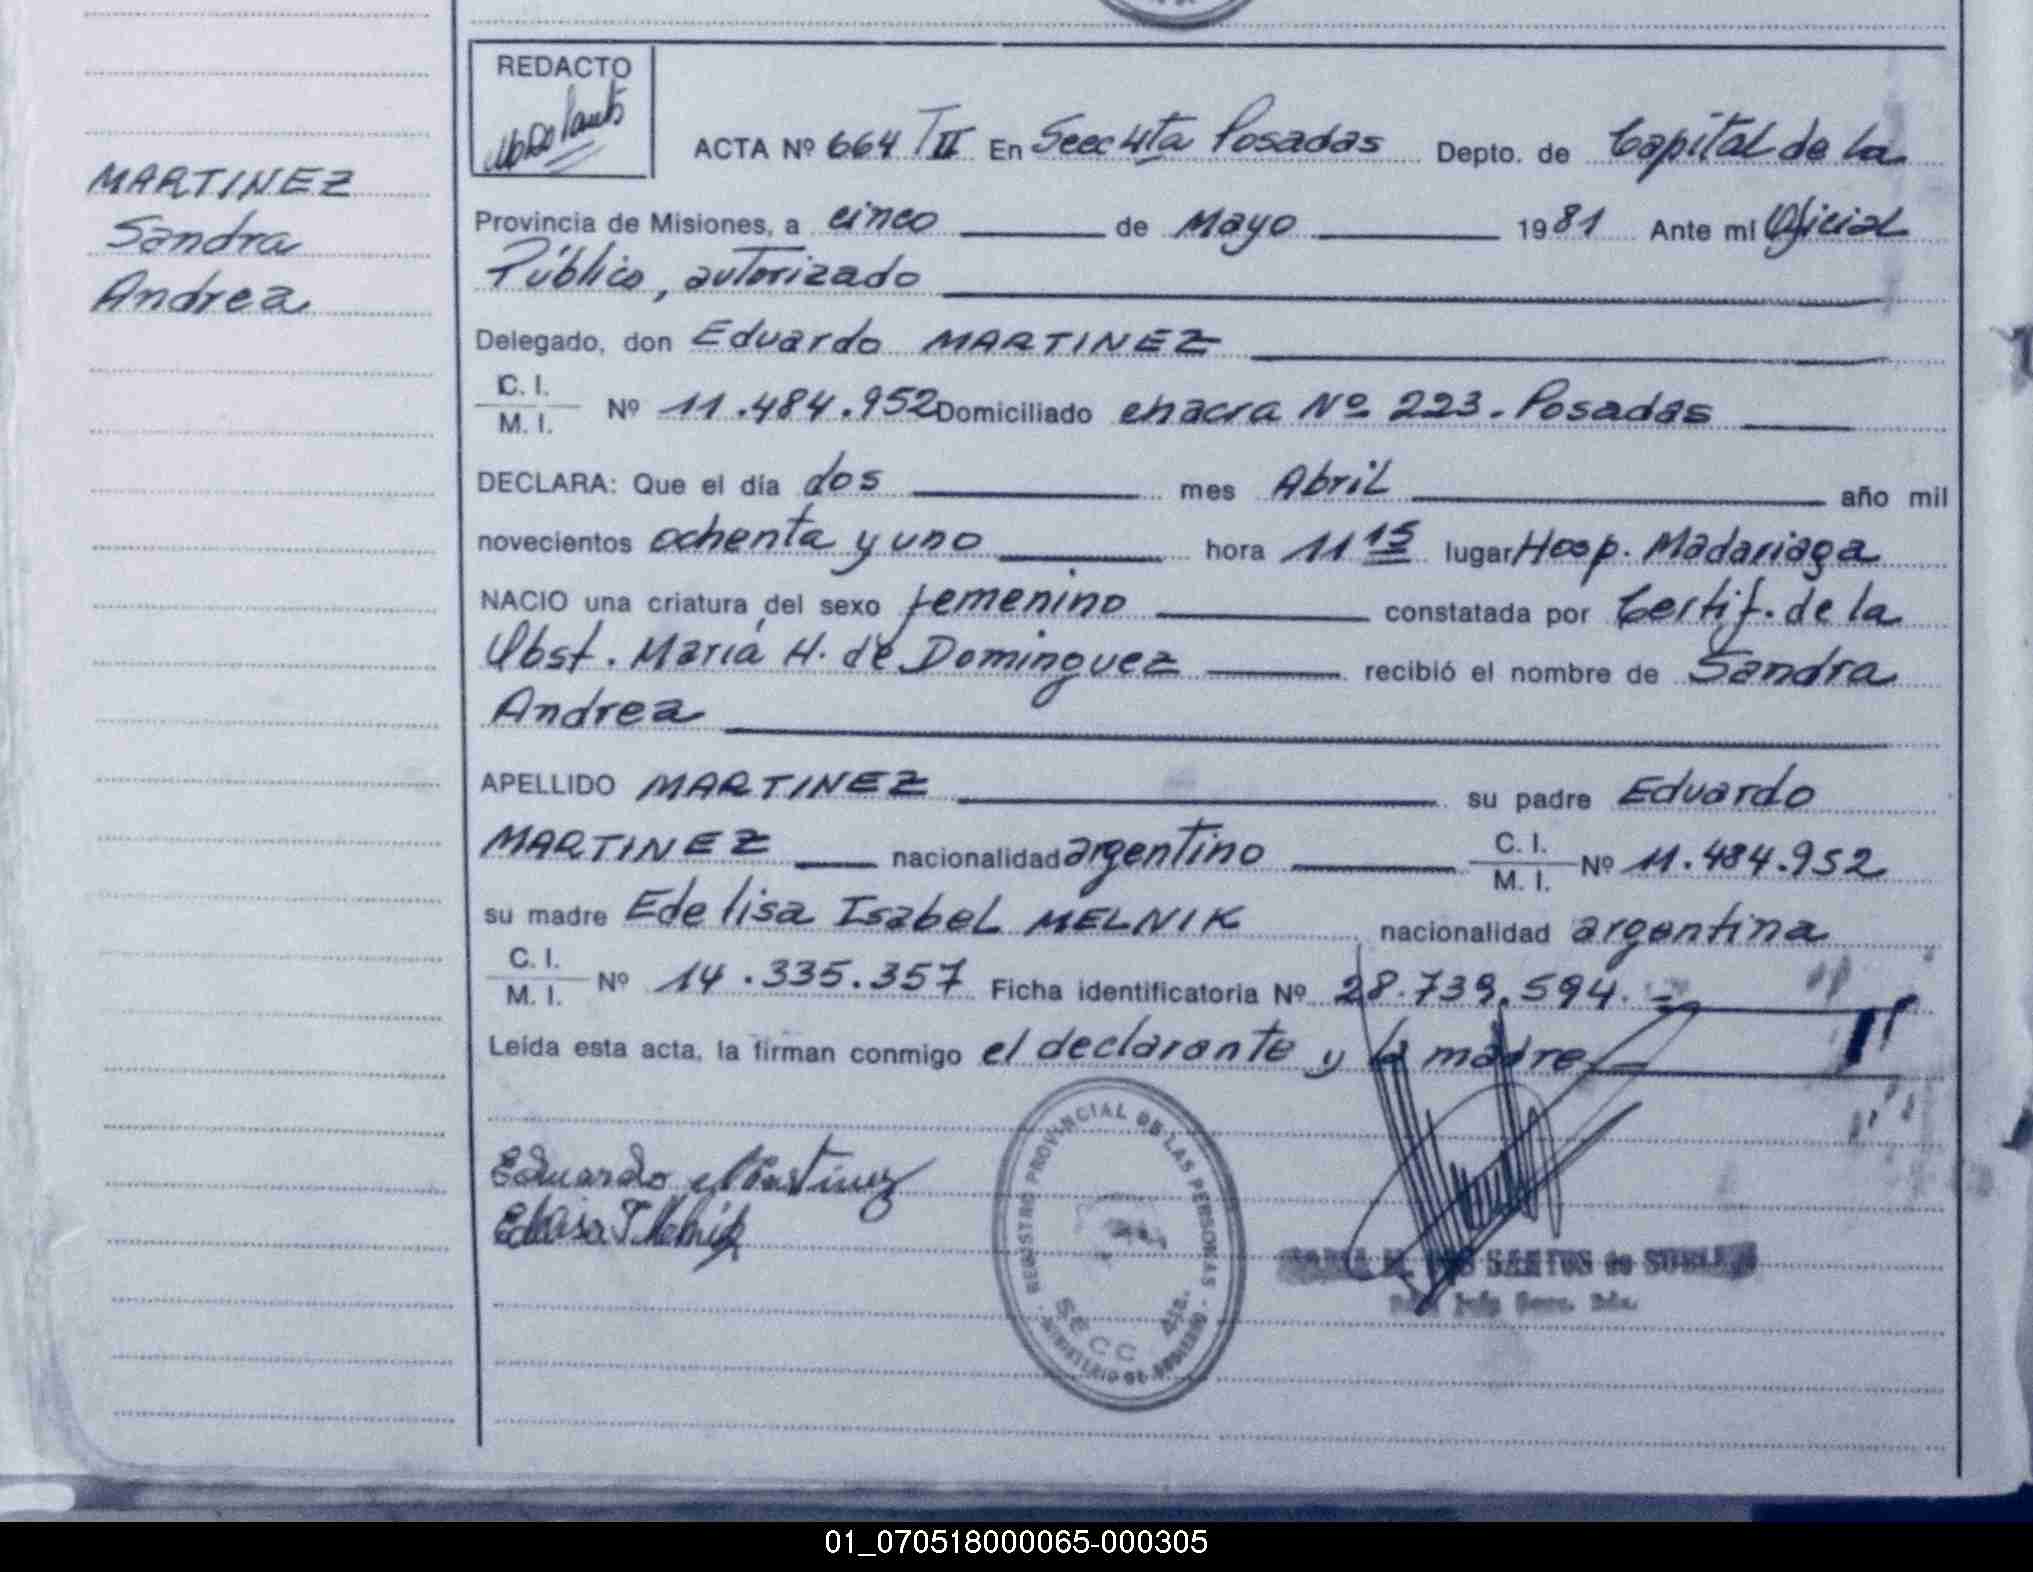 REDACTO
MARTINEZ
Sandra
Andrea
ACTA Nº 664 TII En Secc 4ta Posadas Depto. de Capital de la
Provincia de Misiones, a cinco de Mayo 1981 Ante mi Oficial
Público, autorizado
Delegado, don Eduardo MARTINEZ
C. I.
M. I. Nº 11.484.952 Domiciliado chacra Nº 223. Posadas
DECLARA: Que el día dos mes Abril año mil
novecientos ochenta y uno hora 11 15 lugar Hosp. Madariaga
NACIO una criatura del sexo femenino constatada por Certif. de la
Obst. María H. de Dominguez recibió el nombre de Sandra
Andrea
APELLIDO MARTINEZ su padre Eduardo
MARTINEZ nacionalidad argentino C. I. M. I. Nº 11.484.952
su madre Edelisa Isabel MELNIK nacionalidad argentina
C. I.
M. I. Nº 14.335.357 Ficha identificatoria Nº 28.739.594.-
Leída esta acta, la firman conmigo el declarante y la madre
Eduardo Martinez
REGISTRO PROVINCIAL DE LAS PERSONAS
SECC 4ta.
MINISTERIO DE GOBIERNO
SANTOS de
01_070518000065-000305